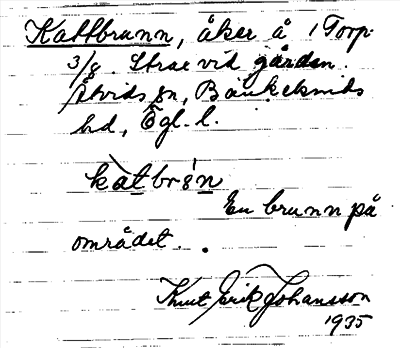 Kattbrunn, åker å 1 Torp
3/8. Strax vid gården.
Åtvids sn, Bankekinds
hd, Ögl. l.
katbrøn
En brunn på
området.
Knut Erik Johansson
1935